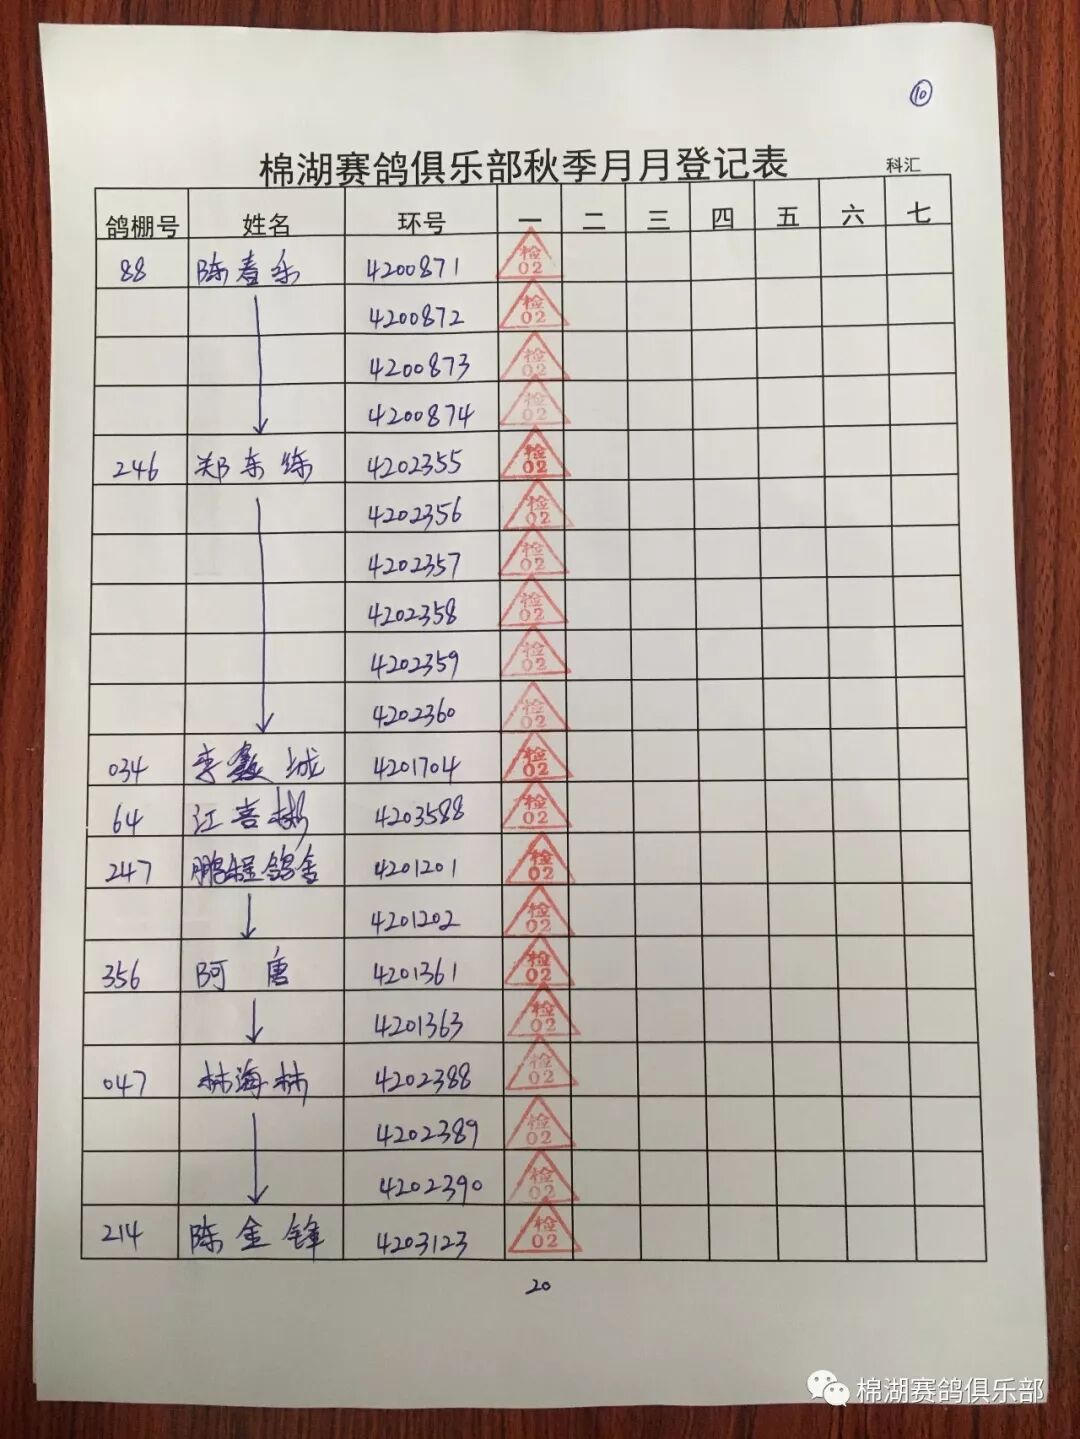 ⑩
棉湖赛鸽俱乐部秋季月月登记表 科汇
鸽棚号 姓名 环号 一 二 三 四 五 六 七
88 陈春乐 4200871 检02
4200872 检02
4200873 检02
4200874 检02
246 郑东练 4202355 检02
4202356 检02
4202357 检02
4202358 检02
4202359 检02
4202360 检02
034 李 城 4201704 检02
64 江喜彬 4203588 检02
247 鹏程鸽舍 4201201 检02
4201202 检02
356 阿唐 4201361 检02
4201363 检02
047 林海林 4202388 检02
4202389 检02
4202390 检02
214 陈金锋 4203123 检02
20
棉湖赛鸽俱乐部